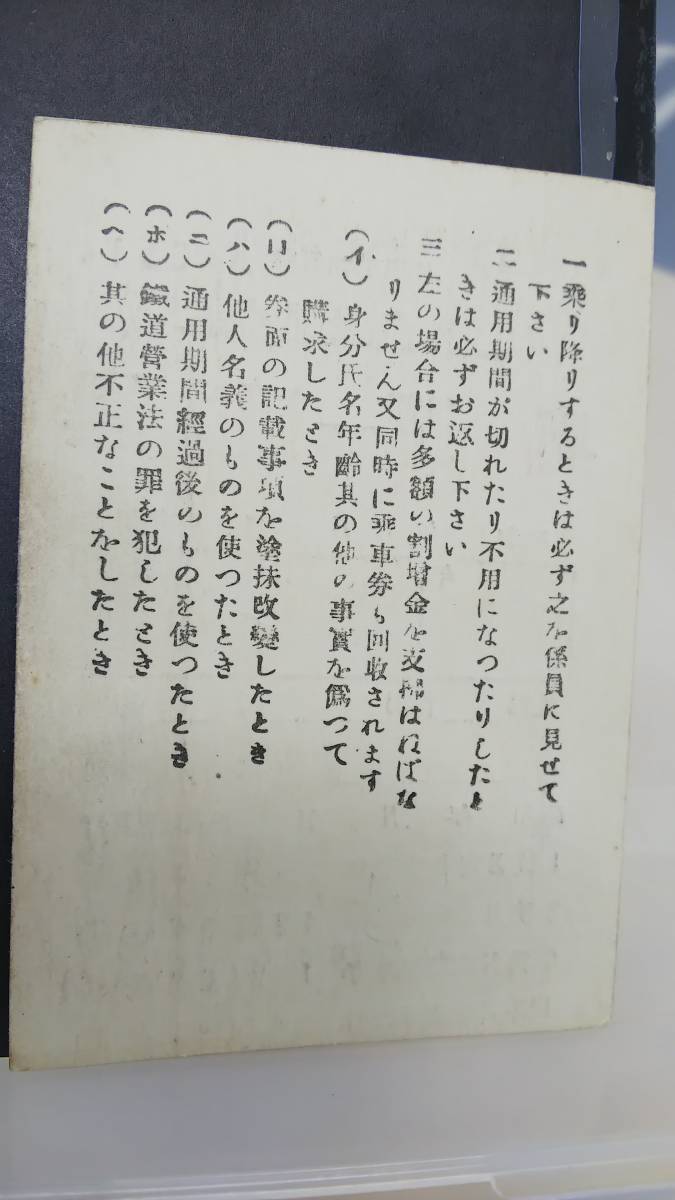 一 乘り降りするときは必ず之を係員に見せて
下さい
二 通用期間が切れたり不用になつたりしたと
きは必ずお返し下さい
三 左の場合には多額の割増金を支拂はねばな
りません又同時に乘車券も回収されます
(イ) 身分氏名年齡其の他の事實を僞つて
購求したとき
(ロ) 券面の記載事項を塗抹改變したとき
(ハ) 他人名義のものを使つたとき
(ニ) 通用期間經過後のものを使つたとき
(ホ) 鐵道營業法の罪を犯したとき
(ヘ) 其の他不正なことをしたとき